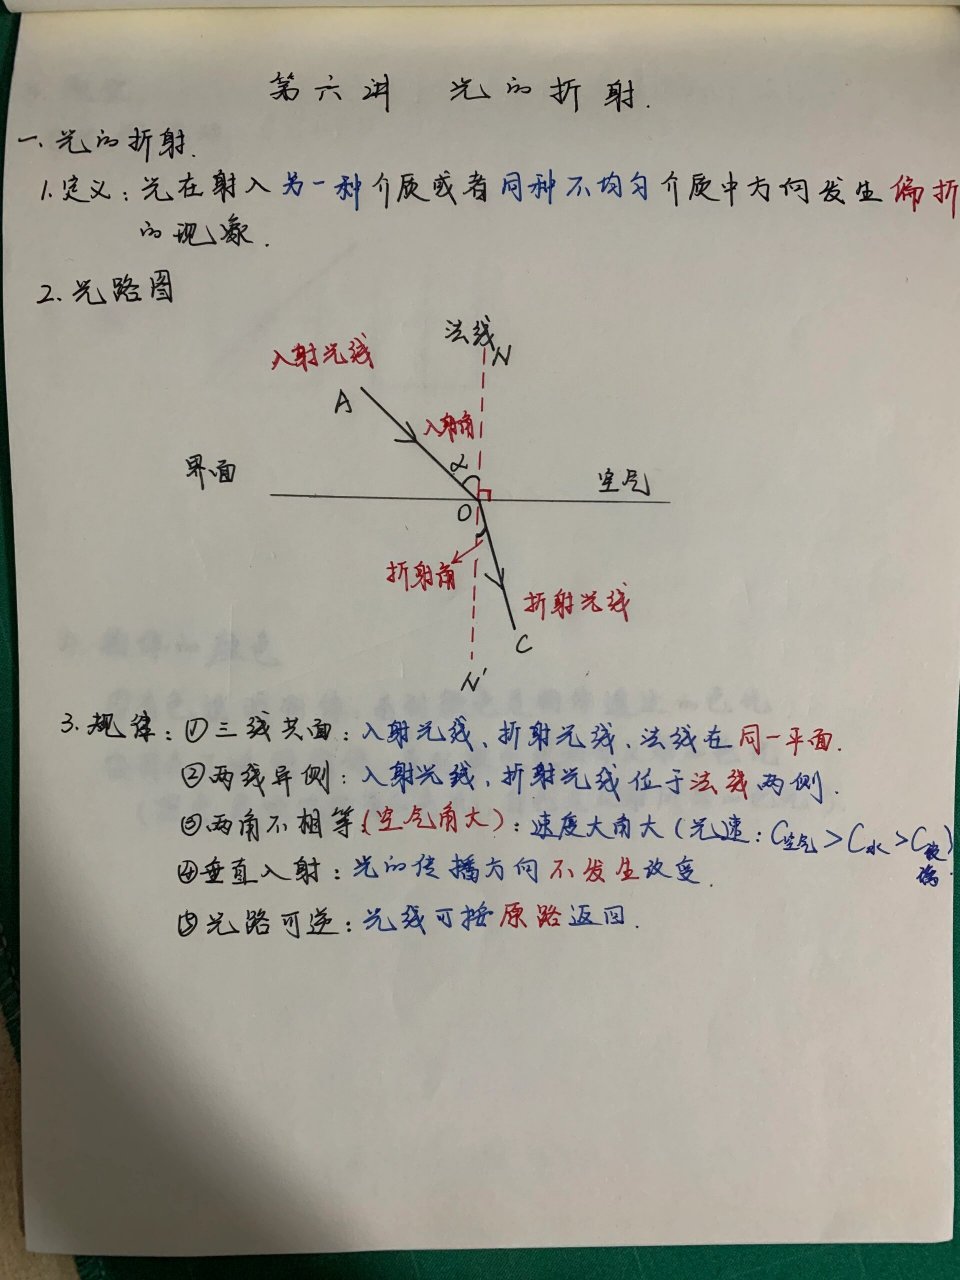 第六讲 光的折射.
一.光的折射.
1.定义:光在射入另一种介质或者同种不均匀介质中方向发生偏折
的现象.
2.光路图
法线
N
入射光线
A
入射角
α
界面
空气
O
折射角
折射光线
C
N'
3.规律:①三线共面:入射光线、折射光线、法线在同一平面.
②两线异侧:入射光线、折射光线位于法线两侧.
③两角不相等(空气角大):速度大角大(光速:C空气>C水>C玻璃)
④垂直入射:光的传播方向不发生改变.
⑤光路可逆:光线可按原路返回.